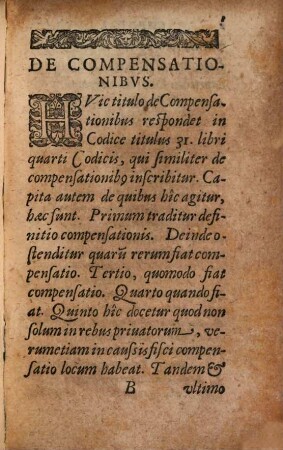 DE COMPENSATIO-
NIBVS.
HVic titulo de Compensa-
tionibus respondet in
Codice titulus 31. libri
quarti Codicis, qui similiter de
compensationib9 inscribitur. Ca-
pita autem de quibus hîc agitur,
hæc sunt. Primum traditur defi-
nitio compensationis. Deinde o-
stenditur quarũ rerum fiat com-
pensatio. Tertio, quomodo fiat
compensatio. Quarto quando fi-
at. Quinto hîc docetur quod non
solum in rebus priuatorum, ve-
rumetiam in caussis fisci compen-
satio locum habeat. Tandem &
B vltimo